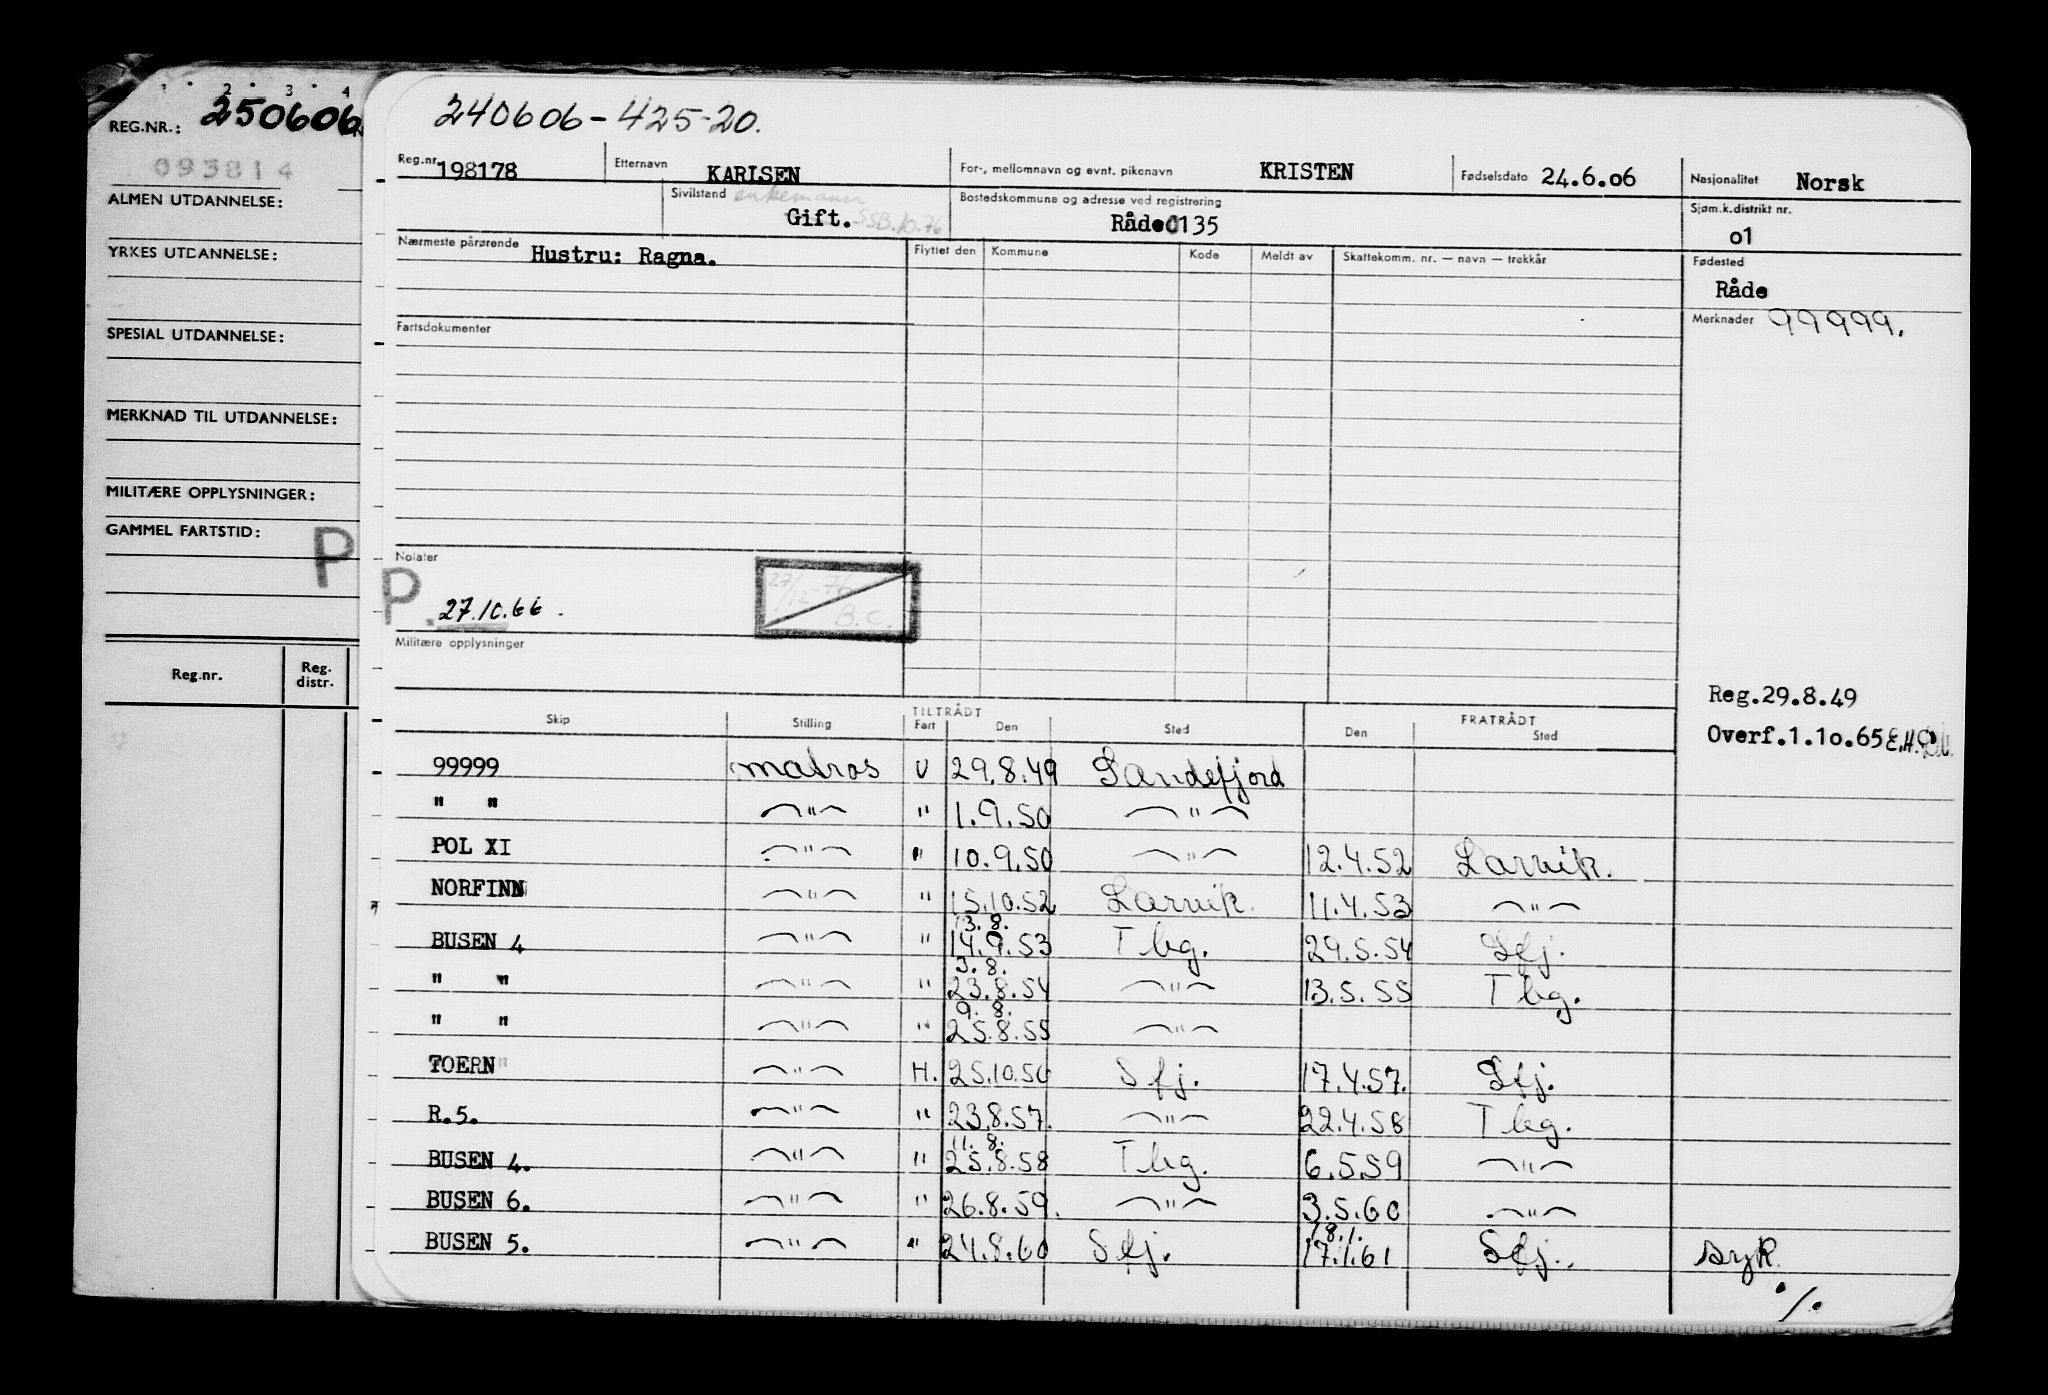 1 · 2 · 3 · 4
REG.NR.: 250606
093814
ALMEN UTDANNELSE:
YRKES UTDANNELSE:
SPESIAL UTDANNELSE:
MERKNAD TIL UTDANNELSE:
MILITÆRE OPPLYSNINGER:
GAMMEL FARTSTID: P
Reg.nr. Reg. distr.
240606-425-20.
Reg.nr. 198178 Etternavn KARLSEN For-, mellomnavn og evnt. pikenavn KRISTEN Fødselsdato 24.6.06 Nasjonalitet Norsk
Sivilstand enkemann Gift. SSB.10.76 Bostedskommune og adresse ved registrering Råde 0135 Sjøm.k.distrikt nr. o1
Nærmeste pårørende Hustru: Ragna. Flyttet den Kommune Kode Meldt av Skattekomm. nr. — navn — trekkår Fødested
Råde
Fartsdokumenter Merknader 99999.
Notater
P. 27.10.66. 27/12-76 B.C.
Militære opplysninger
Reg.29.8.49
Overf.1.1o.65 E.H.
TILTRÅDT FRATRÅDT
Skip Stilling Fart Den Sted Den Sted
99999 matros U 29.8.49 Sandefjord
" " —"— " 1.9.50 —"—
POL XI —"— " 10.9.50 —"— 12.4.52 Larvik.
NORFINN —"— " 15.10.52 Larvik. 11.4.53 —"—
13.8.
BUSEN 4 —"— " 14.9.53 Tbg. 29.5.54 Sfj.
3.8.
" " —"— " 23.8.54 —"— 13.5.55 Tbg.
9.8.
" " —"— " 25.8.55 —"—
TOERN —"— H. 25.10.56 Sfj. 17.4.57. Sfj.
R.5. —"— " 23.8.57. —"— 22.4.58 Tbg.
11.8.
BUSEN 4. —"— " 25.8.58 Tbg. 6.5.59 —"—
BUSEN 6. —"— " 26.8.59. —"— 3.5.60 —"—
18.1.
BUSEN 5. —"— " 24.8.60 Sfj. 17.1.61 Sfj. syk.
·/.